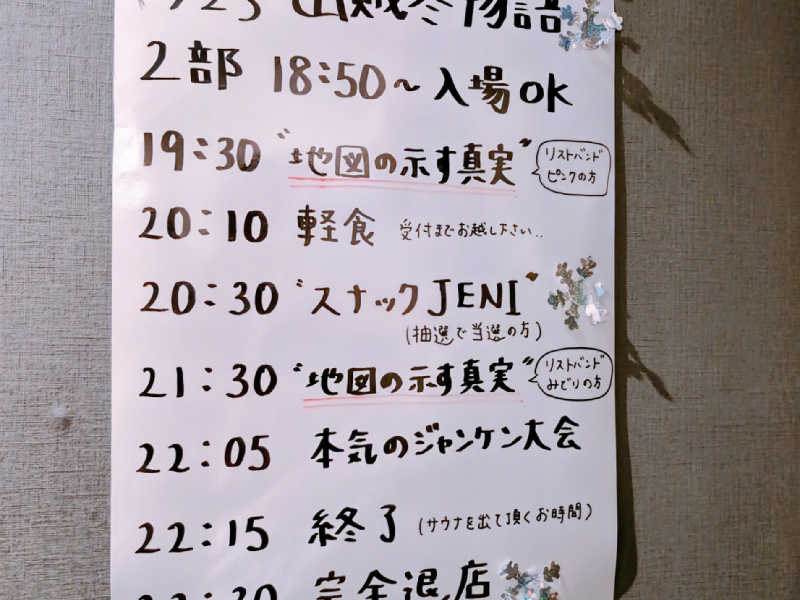 1/23 山賊冬物語
2部 18:50〜入場OK
19:30 “地図の示す真実” リストバンド ピンクの方
20:10 軽食 受付までお越し下さい..
20:30 “スナックJENI”
(抽選で当選の方)
21:30 “地図の示す真実” リストバンド みどりの方
22:05 本気のジャンケン大会
22:15 終了 (サウナを出て頂くお時間)
22:30 完全退店